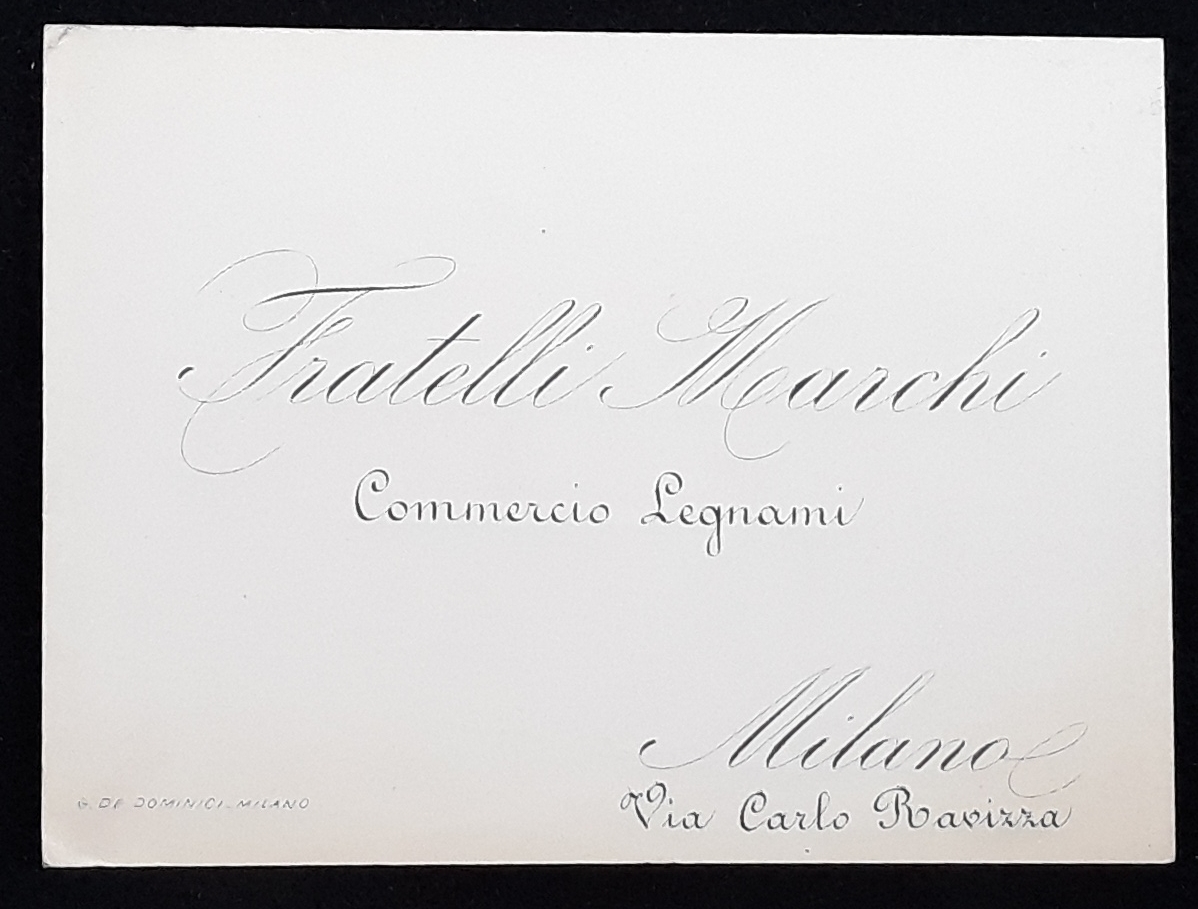 Fratelli Marchi
Commercio Legnami
Milano
Via Carlo Ravizza
G. DE DOMINICI - MILANO